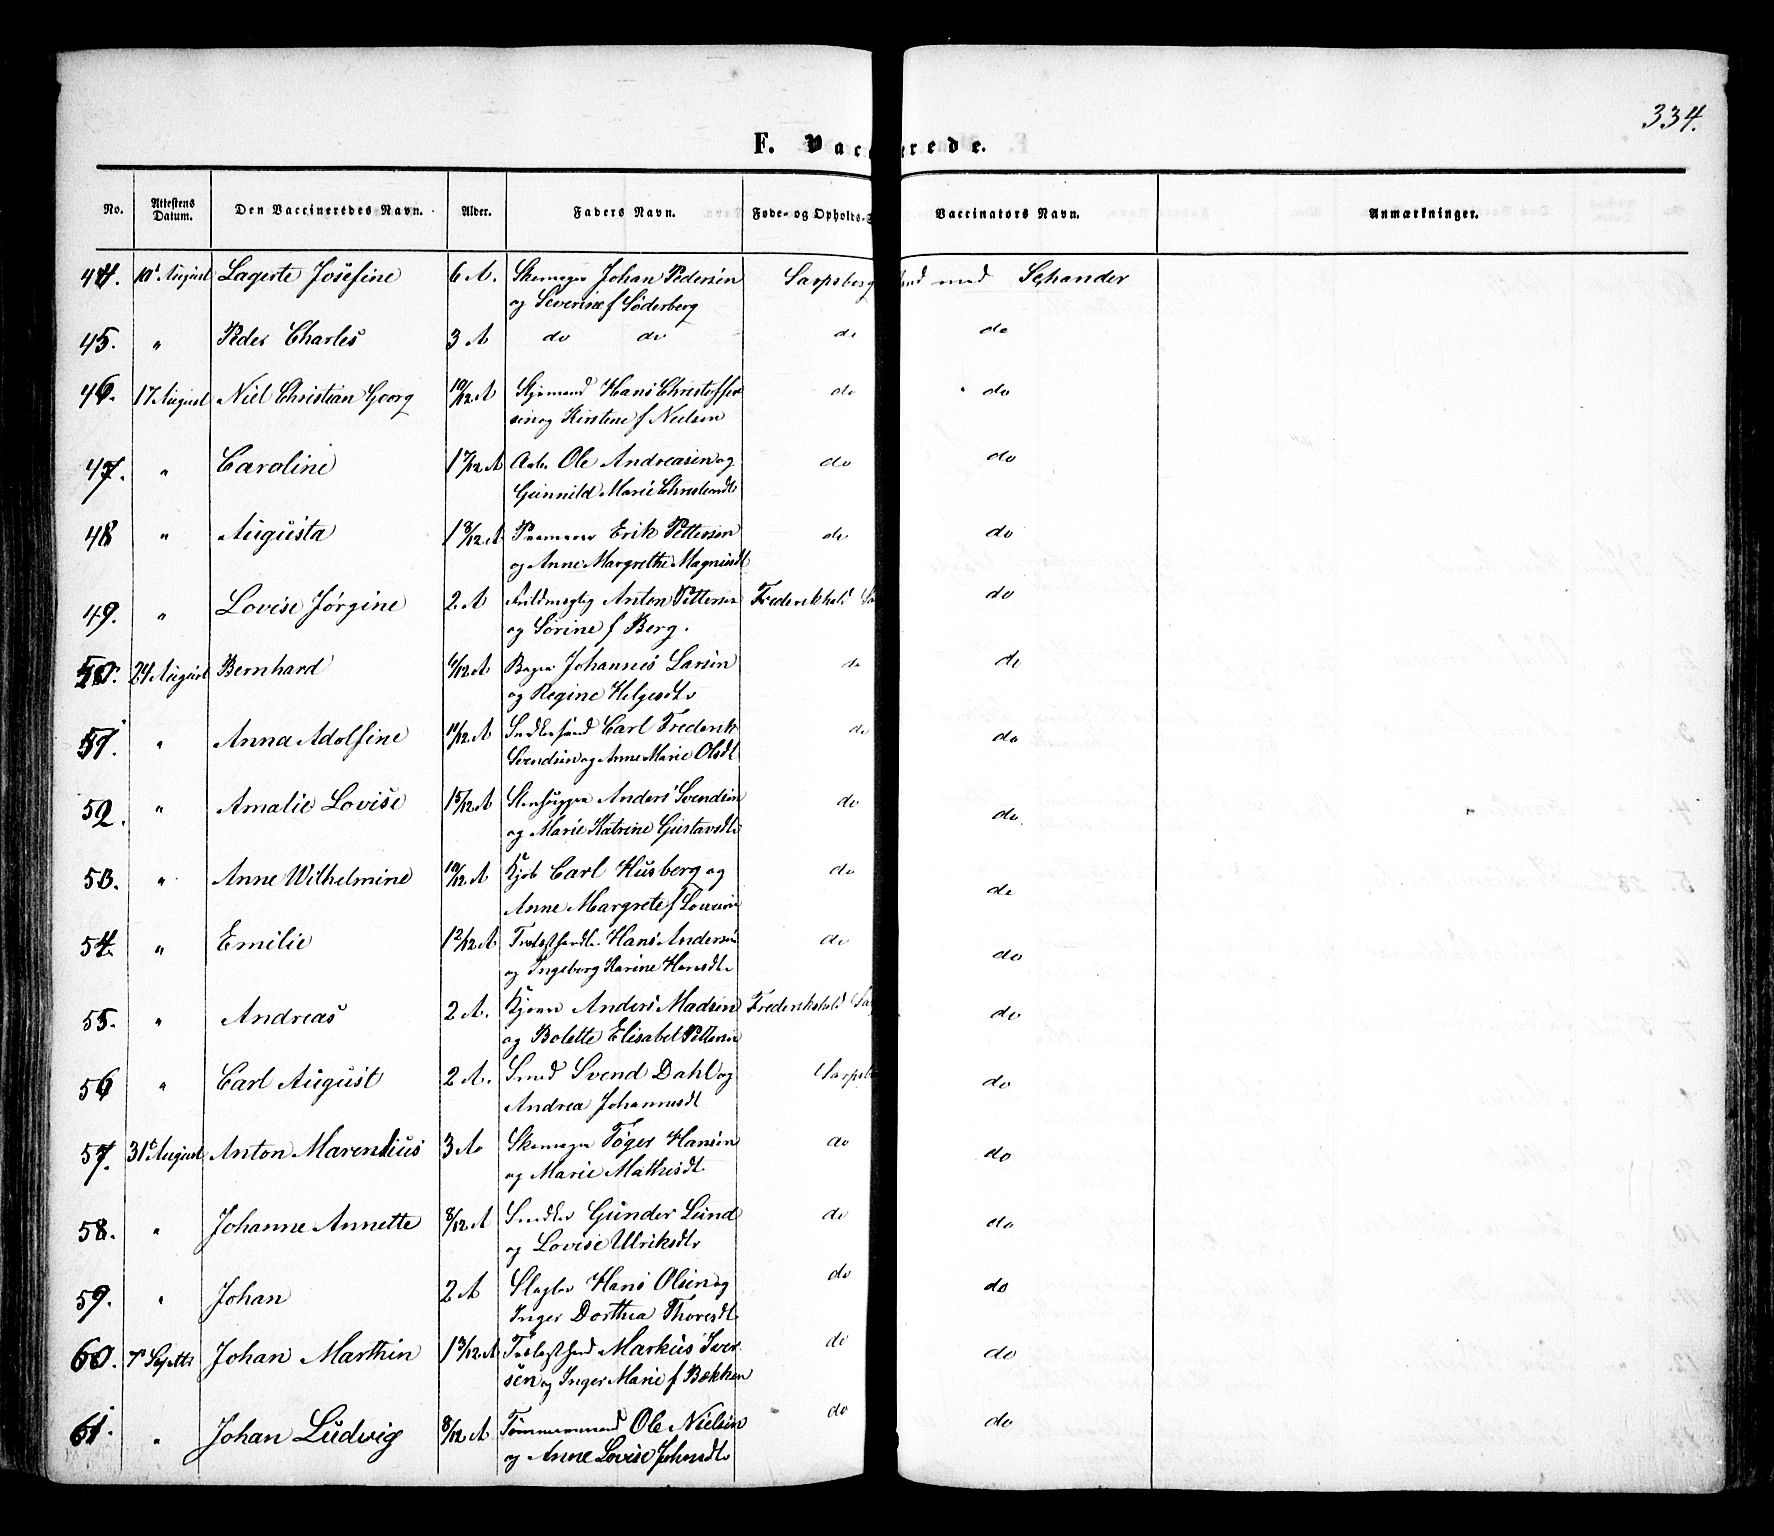 334.
F. Vacc rede.
No. Attestens Datum. Den Vaccineredes Navn. Alder. Faders Navn. Føde- og Opholds-S Vaccinators Navn. Anmærkninger.
44. 10' August Lagerte Josefine 6 A. Skomager Johan Pedersen Sarpsborg med Schander
og Severine f Söderberg
45. " Peder Charles 3 A do do do do
46. 17 August Niel Christian Georg 10/12 A Styrmand Hans Christoffer do do
sen og Kirstine f Nielsen
47. " Caroline 1 7/12 A Arb. Ole Andreasen og do do
Gunnild Marie Christiansdt
48 " Augusta 1 8/12 A Erik Pettersen do do
og Anne Margrethe Magnusdt
49. " Lovise Jørgine 2 A Anton Pettersen Frederikhald Sa do
og Sorine f Berg.
50. 24 August Bernhard 6/12 A Bager Johannes Larsen do do
og Regine Helgesdt.
51. " Anna Adolfine 11/12 A Carl Frederik do do
Svendsen og Anne Marie Olsdt
52. " Amalie Lovise 1 5/12 A Stenhugger Anders Svendsen do do.
og Marie Katrine Gustavsdt.
53. " Anne Wilhelmine 10/12 A Kjøb Carl Husberg og do do
Anne Margrete f
54. " Emilie 1 2/12 A Hans Andersen do do
og Ingeborg Karine Hansdt.
55. " Andreas 2 A. Anders Madsen Frederikshald Sa do
og Bolette Elisabet Pettersen
56 " Carl August 2 A. Smed Svend Dahl og Sarpsb do
Andrea Johannesdt
57. 31' August Anton Marendius 3 A. Skomager Töger Hansen do do
og Marie Mathisdt.
58. " Johanne Annette 8/12 A Gunder Lund do do
og Lovise Ulriksdtr
59. " Johan 2 A Slagter Hans Olsen og do do
Inger Dorthea Thoresdt
60. 7' Septbr Johan Marthin 1 3/12 A Markus Iver do do
sen og Inger Marie f Bækken
61. " Johan Ludvig 8/12 A Tömmermand Ole Nielsen do do
og Anne Lovise Johnsdt.